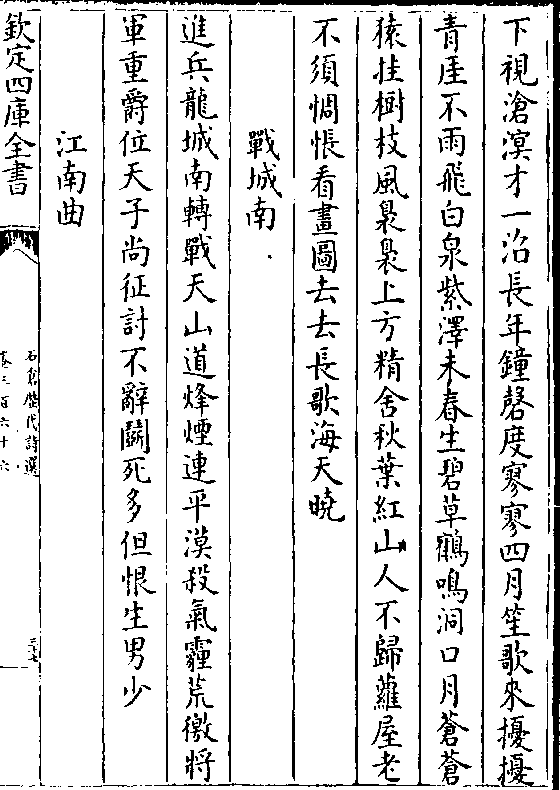 下視滄溟才一沿長年鐘磬度寥寥四月笙歌來擾擾
青厓不雨飛白泉紫澤未春生碧草鶴鳴洞口月蒼蒼
猿挂樹枝風裊裊上方精舍秋葉紅山人不歸蘿屋老
不須惆悵看畫圖去去長歌海天曉
戰城南
進兵龍城南轉戰天山道烽煙連平漠殺氣霾荒徼將
軍重爵位天子尚征討不辭鬭死多但恨生男少
江南曲
欽定四庫全書
石倉歷代詩選
卷三百六十六
三七